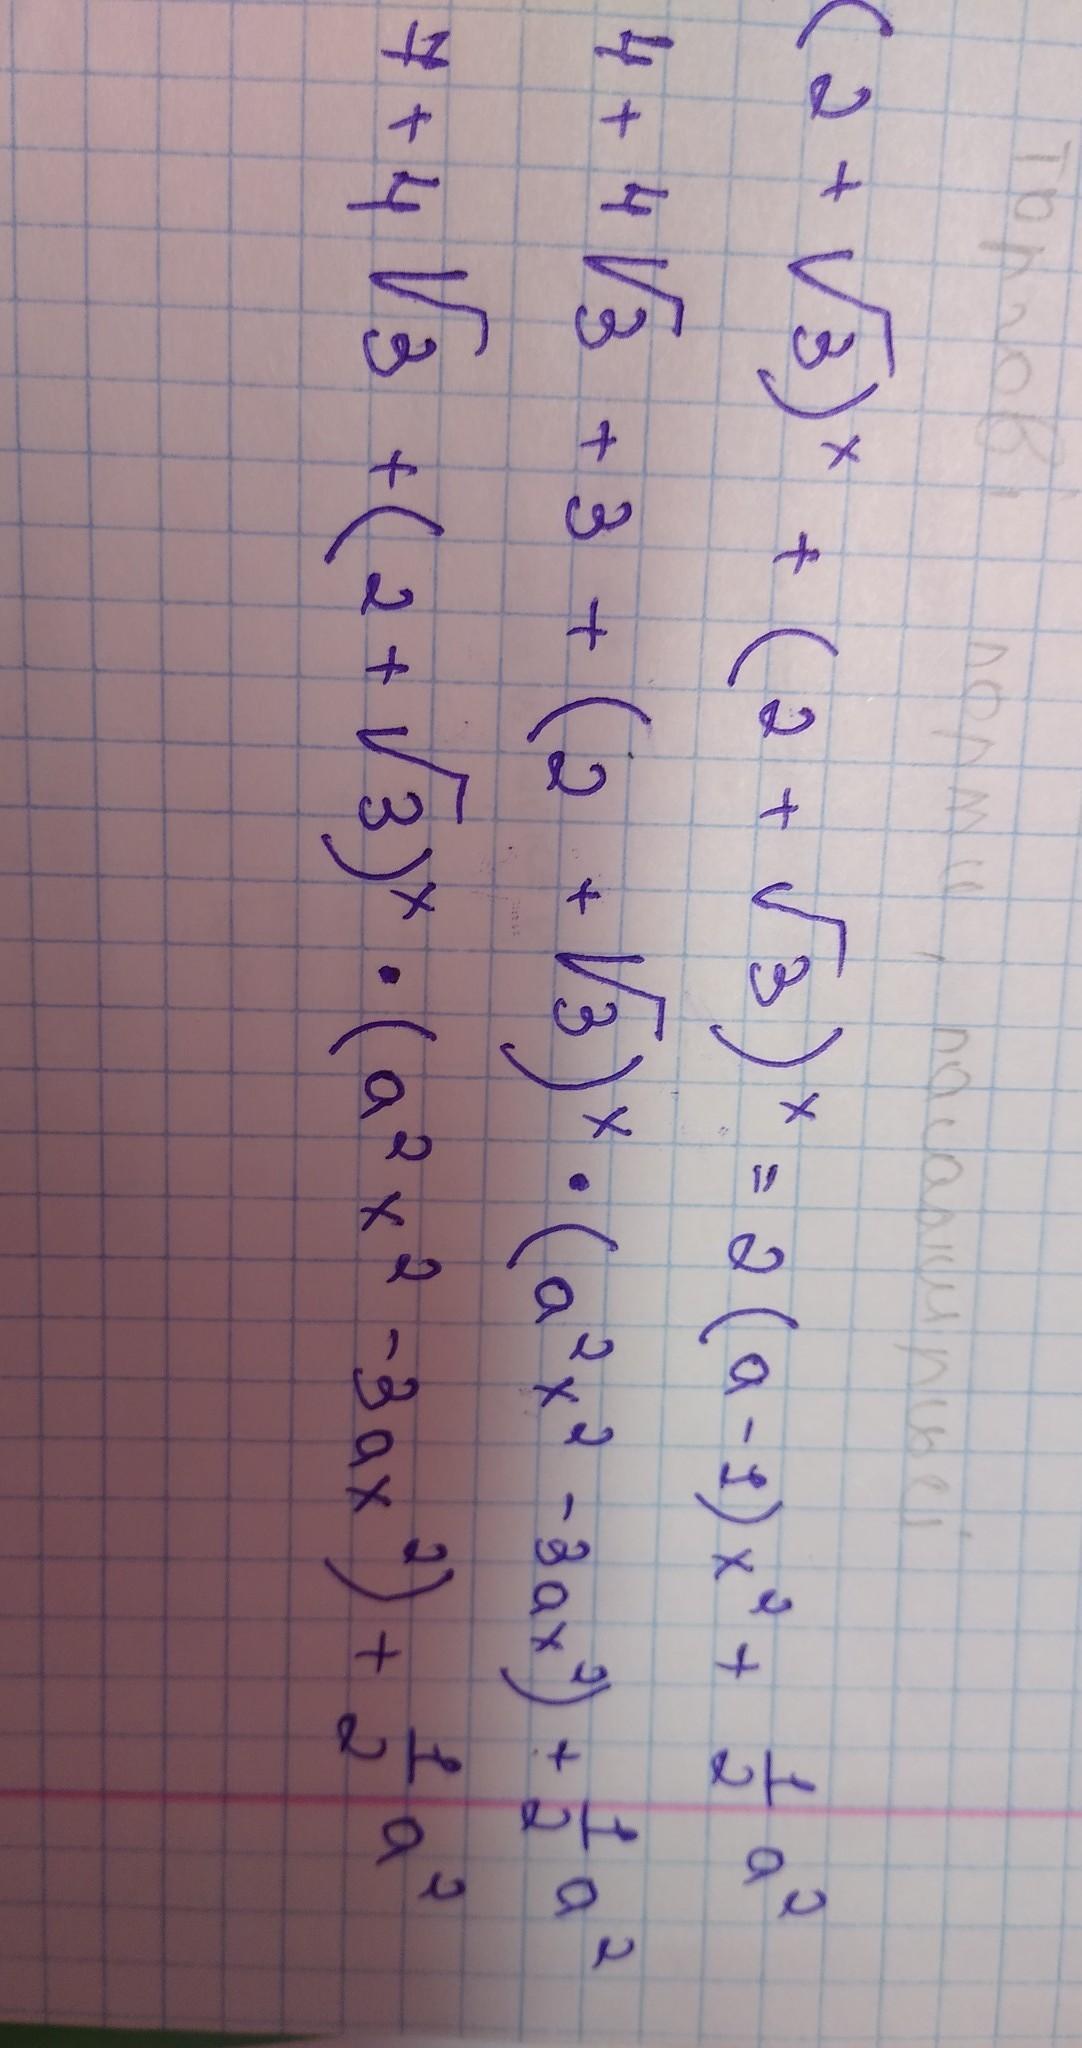 (2 + √3)ˣ + (2 + √3)ˣ = 2(a - 1)x² + 1/2 a²
4 + 4√3 + 3 + (2 + √3)ˣ · (a²x² - 3ax²) + 1/2 a²
7 + 4√3 + (2 + √3)ˣ · (a²x² - 3ax²) + 1/2 a²